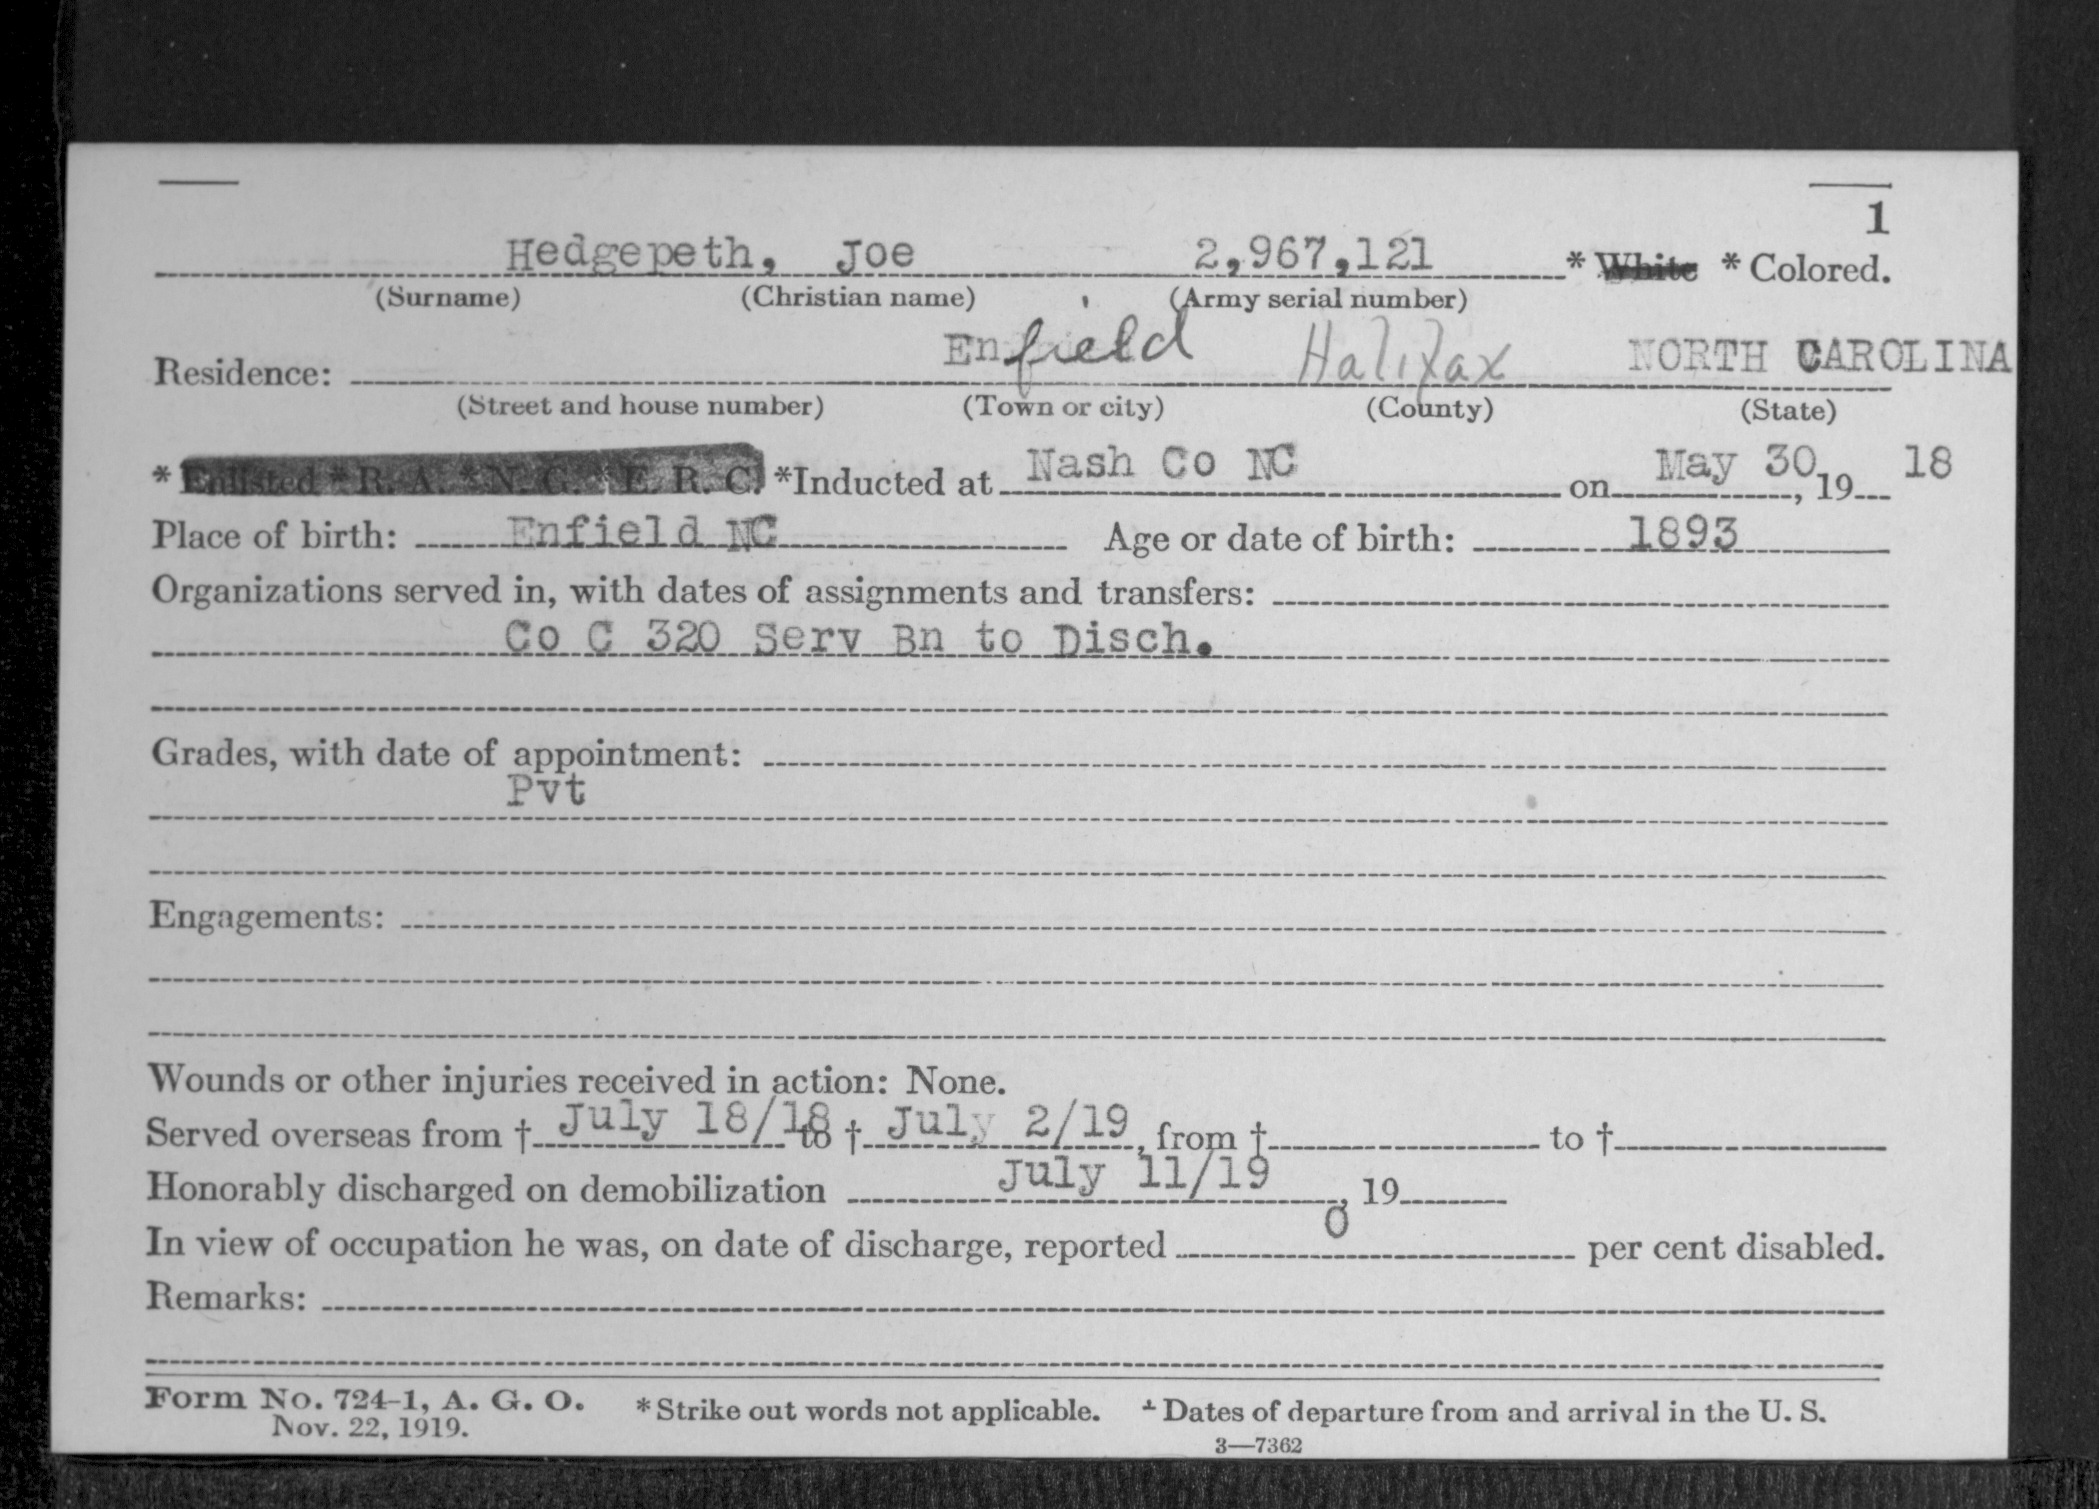 1
Hedgepeth, Joe 2,967,121 * White * Colored.
(Surname) (Christian name) (Army serial number)
Residence: Enfield Halifax NORTH CAROLINA
(Street and house number) (Town or city) (County) (State)
* Enlisted * R. A. * N. G. * E. R. C. *Inducted at Nash Co NC on May 30, 19 18
Place of birth: Enfield NC Age or date of birth: 1893
Organizations served in, with dates of assignments and transfers:
Co C 320 Serv Bn to Disch.
Grades, with date of appointment:
Pvt
Engagements:
Wounds or other injuries received in action: None.
Served overseas from † July 18/18 to † July 2/19, from † to †
Honorably discharged on demobilization July 11/19, 19
In view of occupation he was, on date of discharge, reported 0 per cent disabled.
Remarks:
Form No. 724-1, A. G. O. *Strike out words not applicable. † Dates of departure from and arrival in the U. S.
Nov. 22, 1919.
3—7362